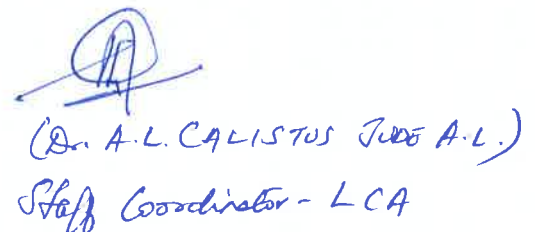 (Dr. A.L. CALISTUS JUDE A.L.)
Staff Coordinator - LCA